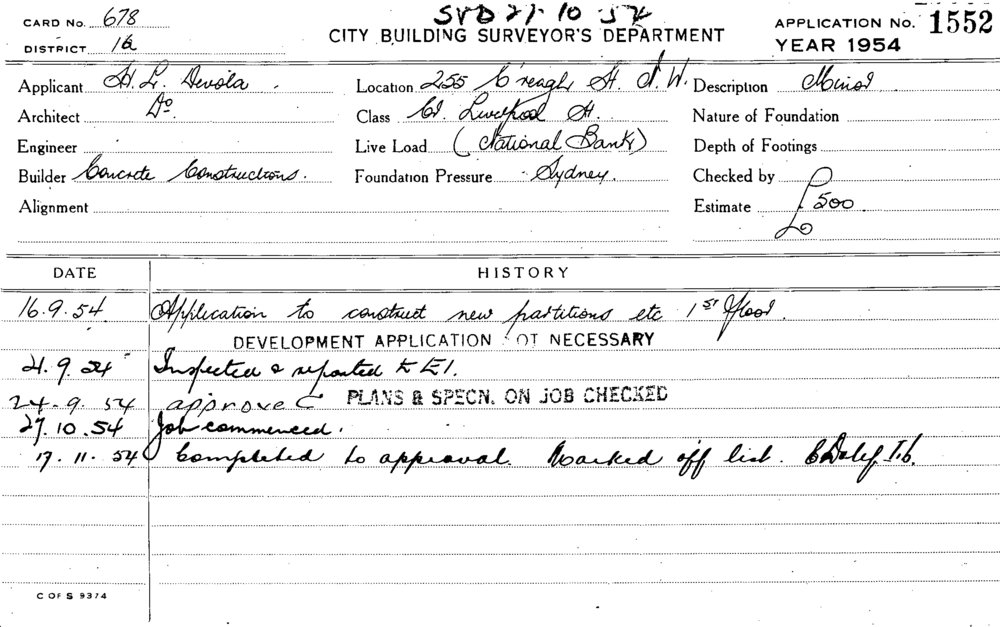 SVD 27.10.54
CARD No. 678
CITY BUILDING SURVEYOR'S DEPARTMENT
APPLICATION No. 1552
DISTRICT 1a
YEAR 1954
Applicant H. L. Devola Location 255 C'reagh St. S.W. Description Minor
Architect Do. Class Cr. Liverpool St. Nature of Foundation
Engineer Live Load (National Bank) Depth of Footings
Builder Concrete Constructions. Foundation Pressure Sydney. Checked by
Alignment Estimate £500
DATE HISTORY
16.9.54. Application to construct new partitions etc 1st floor.
DEVELOPMENT APPLICATION NOT NECESSARY
21.9.54 Inspected & reported
24.9.54 approved PLANS & SPECN. ON JOB CHECKED
27.10.54 Job commenced.
17.11.54 Completed to approval. Marked off list.
C OF S 9374